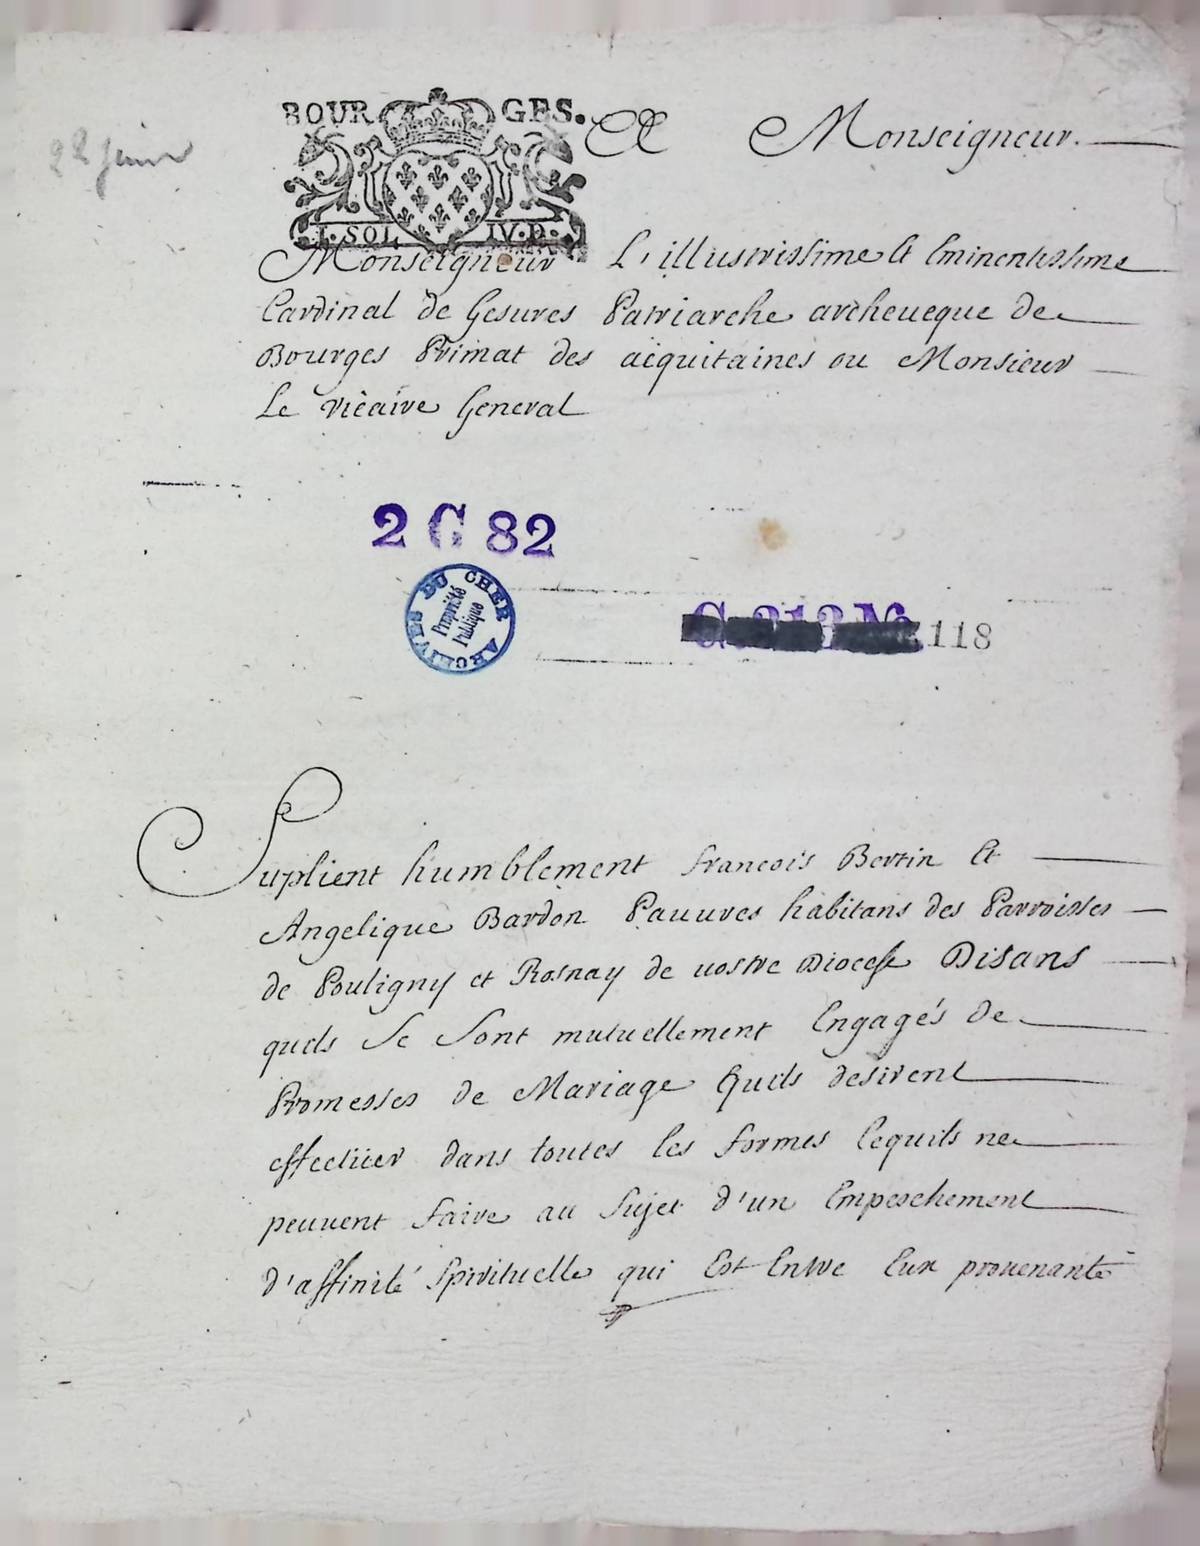 BOURGES.
22 juin
A Monseigneur.
I. SOL IV. D.
Monseigneur L'illustrissime et Eminentissime
Cardinal de Gesures Patriarche archeueque de
Bourges Primat des acquitaines ou Monsieur
Le vicaire General
2 G 82
ARCHIVES DU CHER
Propriété
Publique
118
Suplient humblement francois Bertin et
Angelique Bardon Pauures habitans des Parroisses
de Pouligny et Rosnay de uostre Diocese Disans
quils se sont mutuellement Engagés de
Promesses de Mariage quils desirent
effectuer dans toutes les formes cequils ne
peuuent faire au sujet d'un Empeschement
d'affinité spirituelle qui Est Entre Eux prouenante